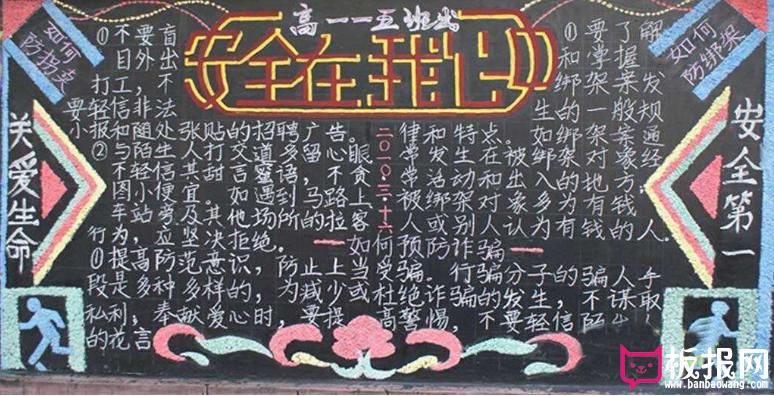 高一一五班出
安全在我心
如何
防拐卖
如何
防绑架
关爱生命
安全第一
①不要盲目外出
打工,
轻信非法
小报和随处张贴的招聘广告。
②与陌生人打交道多留心眼
图小便宜。如遇到马路上客
车站旁及其他场所的拉客
行为,应坚决拒绝。
二〇一〇.三.十六
①要了解
和掌握
绑架案发
生的一般规
律和特点。如绑架案通
常常发生在被绑架对象经
常活动和出入的地方。
被绑架对象多为有钱的
人或别人认为有钱的人。
如何预防诈骗
①提高防范意识,防止上当受骗。行骗分子的骗人手
段是多种多样的,为减少或杜绝诈骗的发生,不谋取
私利,奉献爱心时,要提高警惕,不要轻信陌生人
的花言
板报网
www.banbaowang.com